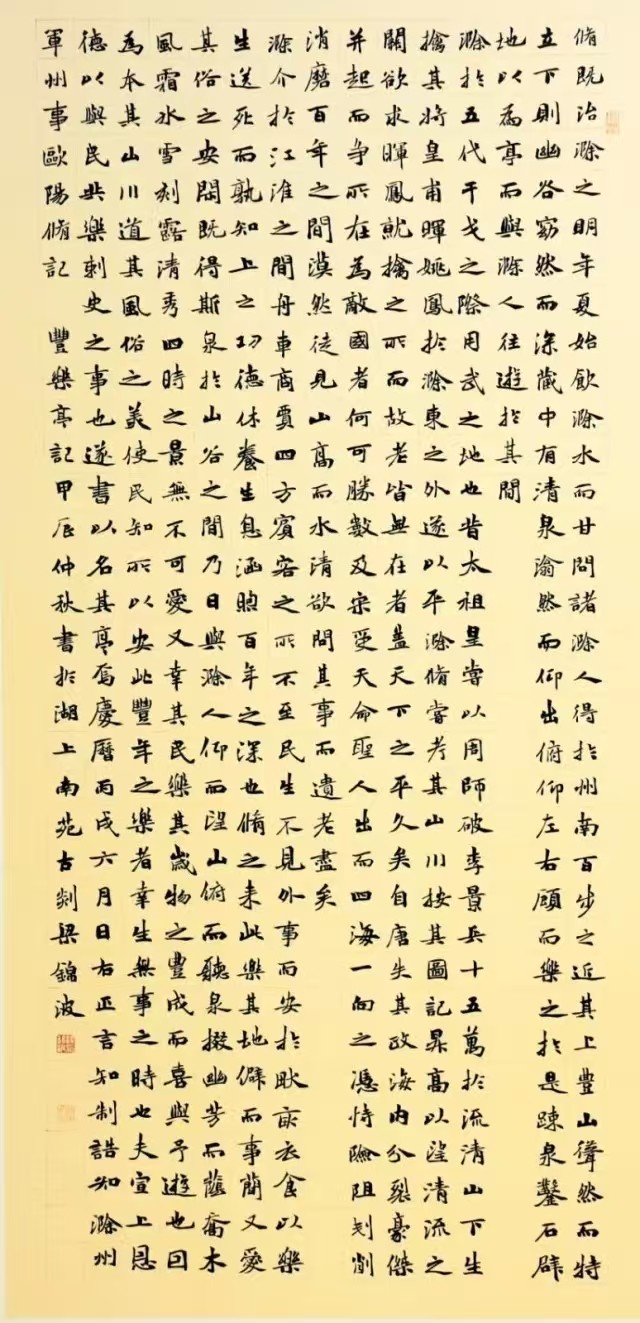 脩既治滁之明年夏始飲滁水而甘問諸滁人得於州南百步之近其上豐山聳然而特
立下則幽谷窈然而深藏中有清泉滃然而仰出俯仰左右顧而樂之於是疎泉鑿石辟
地以為亭而與滁人往遊於其間
滁於五代干戈之際用武之地也昔太祖皇嘗以周師破李景兵十五萬於流清山下生
擒其將皇甫暉姚鳳於滁東之外遂以平滁脩嘗考其山川按其圖記昇高以望清流之
關欲求暉鳳就擒之所而故老皆無在者蓋天下之平久矣自唐失其政海內分裂豪傑
并起而爭所在為敵國者何可勝數及宋受天命聖人出而四海一向之憑恃險阻剗削
消磨百年之間漠然徒見山高而水清欲問其事而遺老盡矣
滁介於江淮之間舟車商賈四方賓客之所不至民生不見外事而安於畎畝衣食以樂
生送死而孰知上之功德休養生息涵煦百年之深也脩之来此樂其地僻而事簡又愛
其俗之安閑既得斯泉於山谷之間乃日與滁人仰而望山俯而聽泉掇幽芳而蔭喬木
風霜水雪刻露清秀四時之景無不可愛又幸其民樂其歲物之豐成而喜與予遊也因
為本其山川道其風俗之美使民知所以安此豐年之樂者幸生無事之時也夫宣上恩
德以與民共樂刺史之事也遂書以名其亭焉慶曆丙戌六月日右正言知制誥知滁州
軍州事歐陽脩記 豐樂亭記甲辰仲秋書於湖上南苑古剡梁錦波